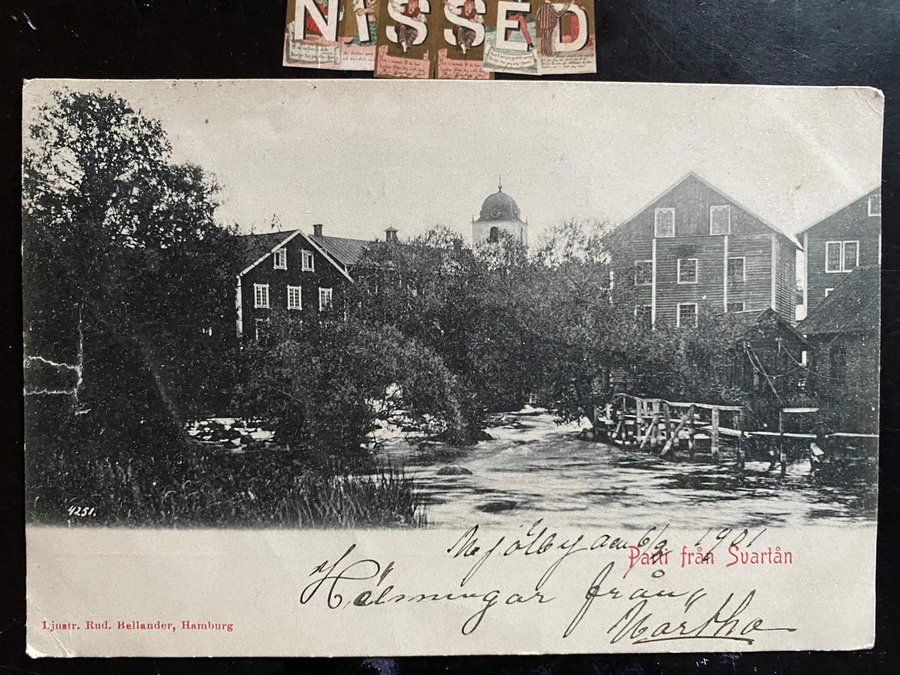 NISSED
4251.
Mjölby den 6/9 1901
Parti från Svartån
Hälsningar från
Märtha
Ljustr. Rud. Bellander, Hamburg